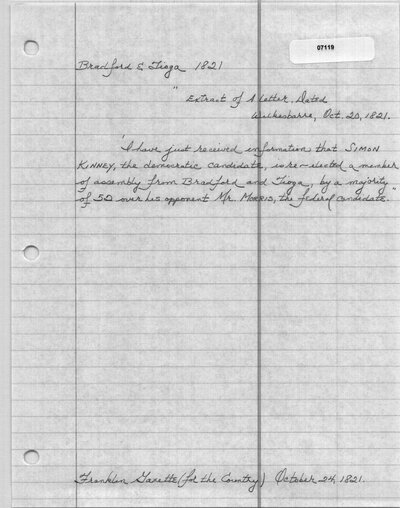 07119
Bradford & Tioga 1821
"Extract of A Letter, Dated
Wilkesbarre, Oct. 20, 1821.
'I have just received information that SIMON
KINNEY, the democratic candidate, is re-elected a member
of assembly from Bradford and Tioga, by a majority
of 50 over his opponent Mr. MORRIS, the federal candidate."
Franklin Gazette (for the Country) October 24, 1821.